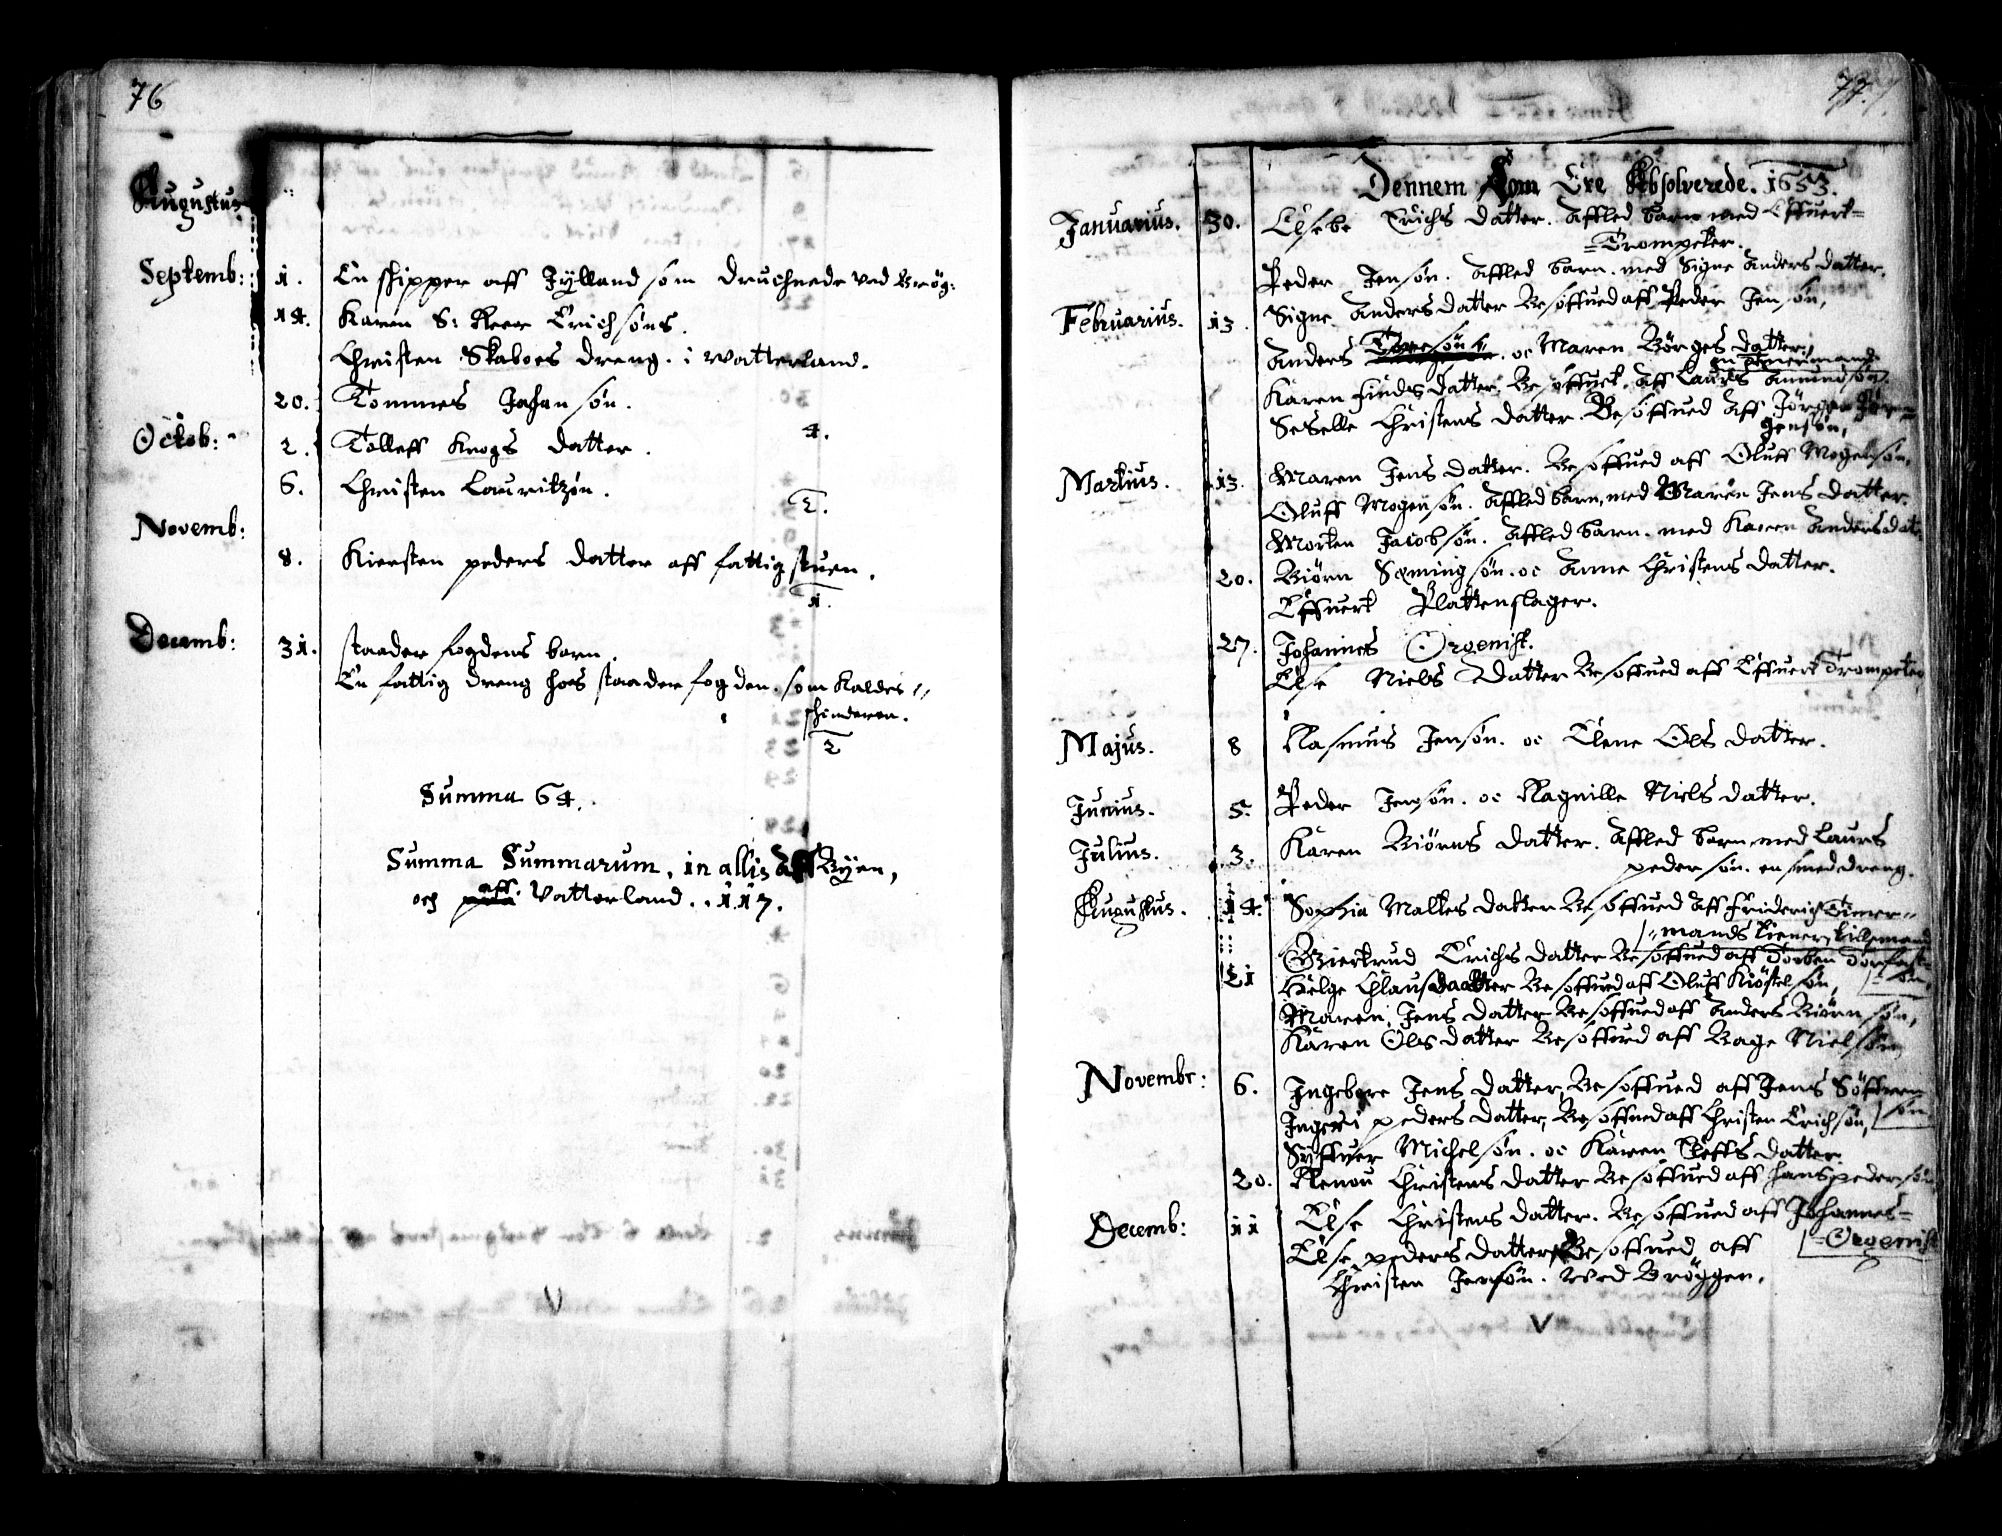 76
Augustus
Septemb: 1. En skipper aff Jylland som druchnede ved Brög:
14. Karen S: Peer Erichsöns.
Christen Skaboes dreng. i Vatterland.
20. Tommes Johansön.
4.
Octob: 2. Tolleff Knogs datter.
6. Christen Lauritzøn.
2.
Novemb:
8. Kiersten peders datter aff fattig stuen.
1.
Decemb: 31. staader fogdens barn.
En fattig dreng hoes staader fogden. som Kaldes
skinderen.
2
Summa 64.
Summa Summarum, in allis Aff Byen,
och aff Vatterland. . 117.
77.
Dennem Som Ere Absolverede. 1653.
Januarius. 30. Elsebe Erichs datter. Affled barn med Effuert
Trompeter.
Peder Jensön. Affled barn. med Signe Anders datter.
Februarius. 13. Signe Anders datter Besoffued aff Peder Jensön,
Anders Toersön. oc Maren Börges datter.
Karen Finds datter, Besoffuet. aff Laurs Amundsön.
Seselle Christens datter. Besoffued aff Jörgen Jör=
gensön,
Martius. 13. Maren Jens datter. Besoffued aff Oluff Mogensön,
Oluff Mogensön. Affled barn, med Maren Jens datter.
Morten Jacobsön. Affled barn. med Karen Anders dat
20. Biörn Sæmingsön. oc Anne Christens datter.
Effuert Plattenslager.
27. Johannes Orgenist.
Else Niels datter Besoffued aff Effuert Trompeter
Majus. 8 Rasmus Jensön. oc Elene Ols datter.
Junius. 5. Peder Jensön. oc Ragnille Niels datter.
Julius. 3. Karen Biörns datter. Affled barn med Laurs
pedersön. en smeddreng.
Augustus. 14. Sophia Maltes datter Besoffued aff Friderich Timer
mands tiener,
Giertrud Erichs datter Besoffued aff Torben
21 Helge Clausdaatter Besoffued aff Oluff Kiöstelsön,
Maren Jens datter Besoffued aff Anders Biörnsön,
Karen Ols datter Besoffued aff Bage Nielsön
Novembr: 6. Ingeborre Jens datter, Besoffued aff Jens Söffren
sön
Inger peders datter, Besoffued aff Christen Erichsön,
Syffuer Michelsön. oc Karen Gleffs datter
20. Renou Christens datter Besoffued aff Hans pedersön
Decemb: 11 Else Christens datter. Besoffued aff Johannes=
=Orgenist
Else peders datter Besoffued aff
Christen Jensön. Ved Bröggen.